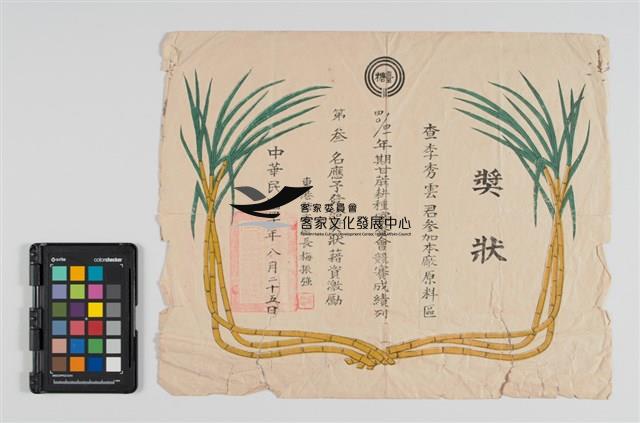 獎狀
查李秀雲君參加本廠原料區
年期甘蔗耕種
會競賽成績列
第叁名應予
狀藉資激勵
東港
長梅振強
中華民
年八月二十五日
客家委員會
客家文化發展中心
colorchecker